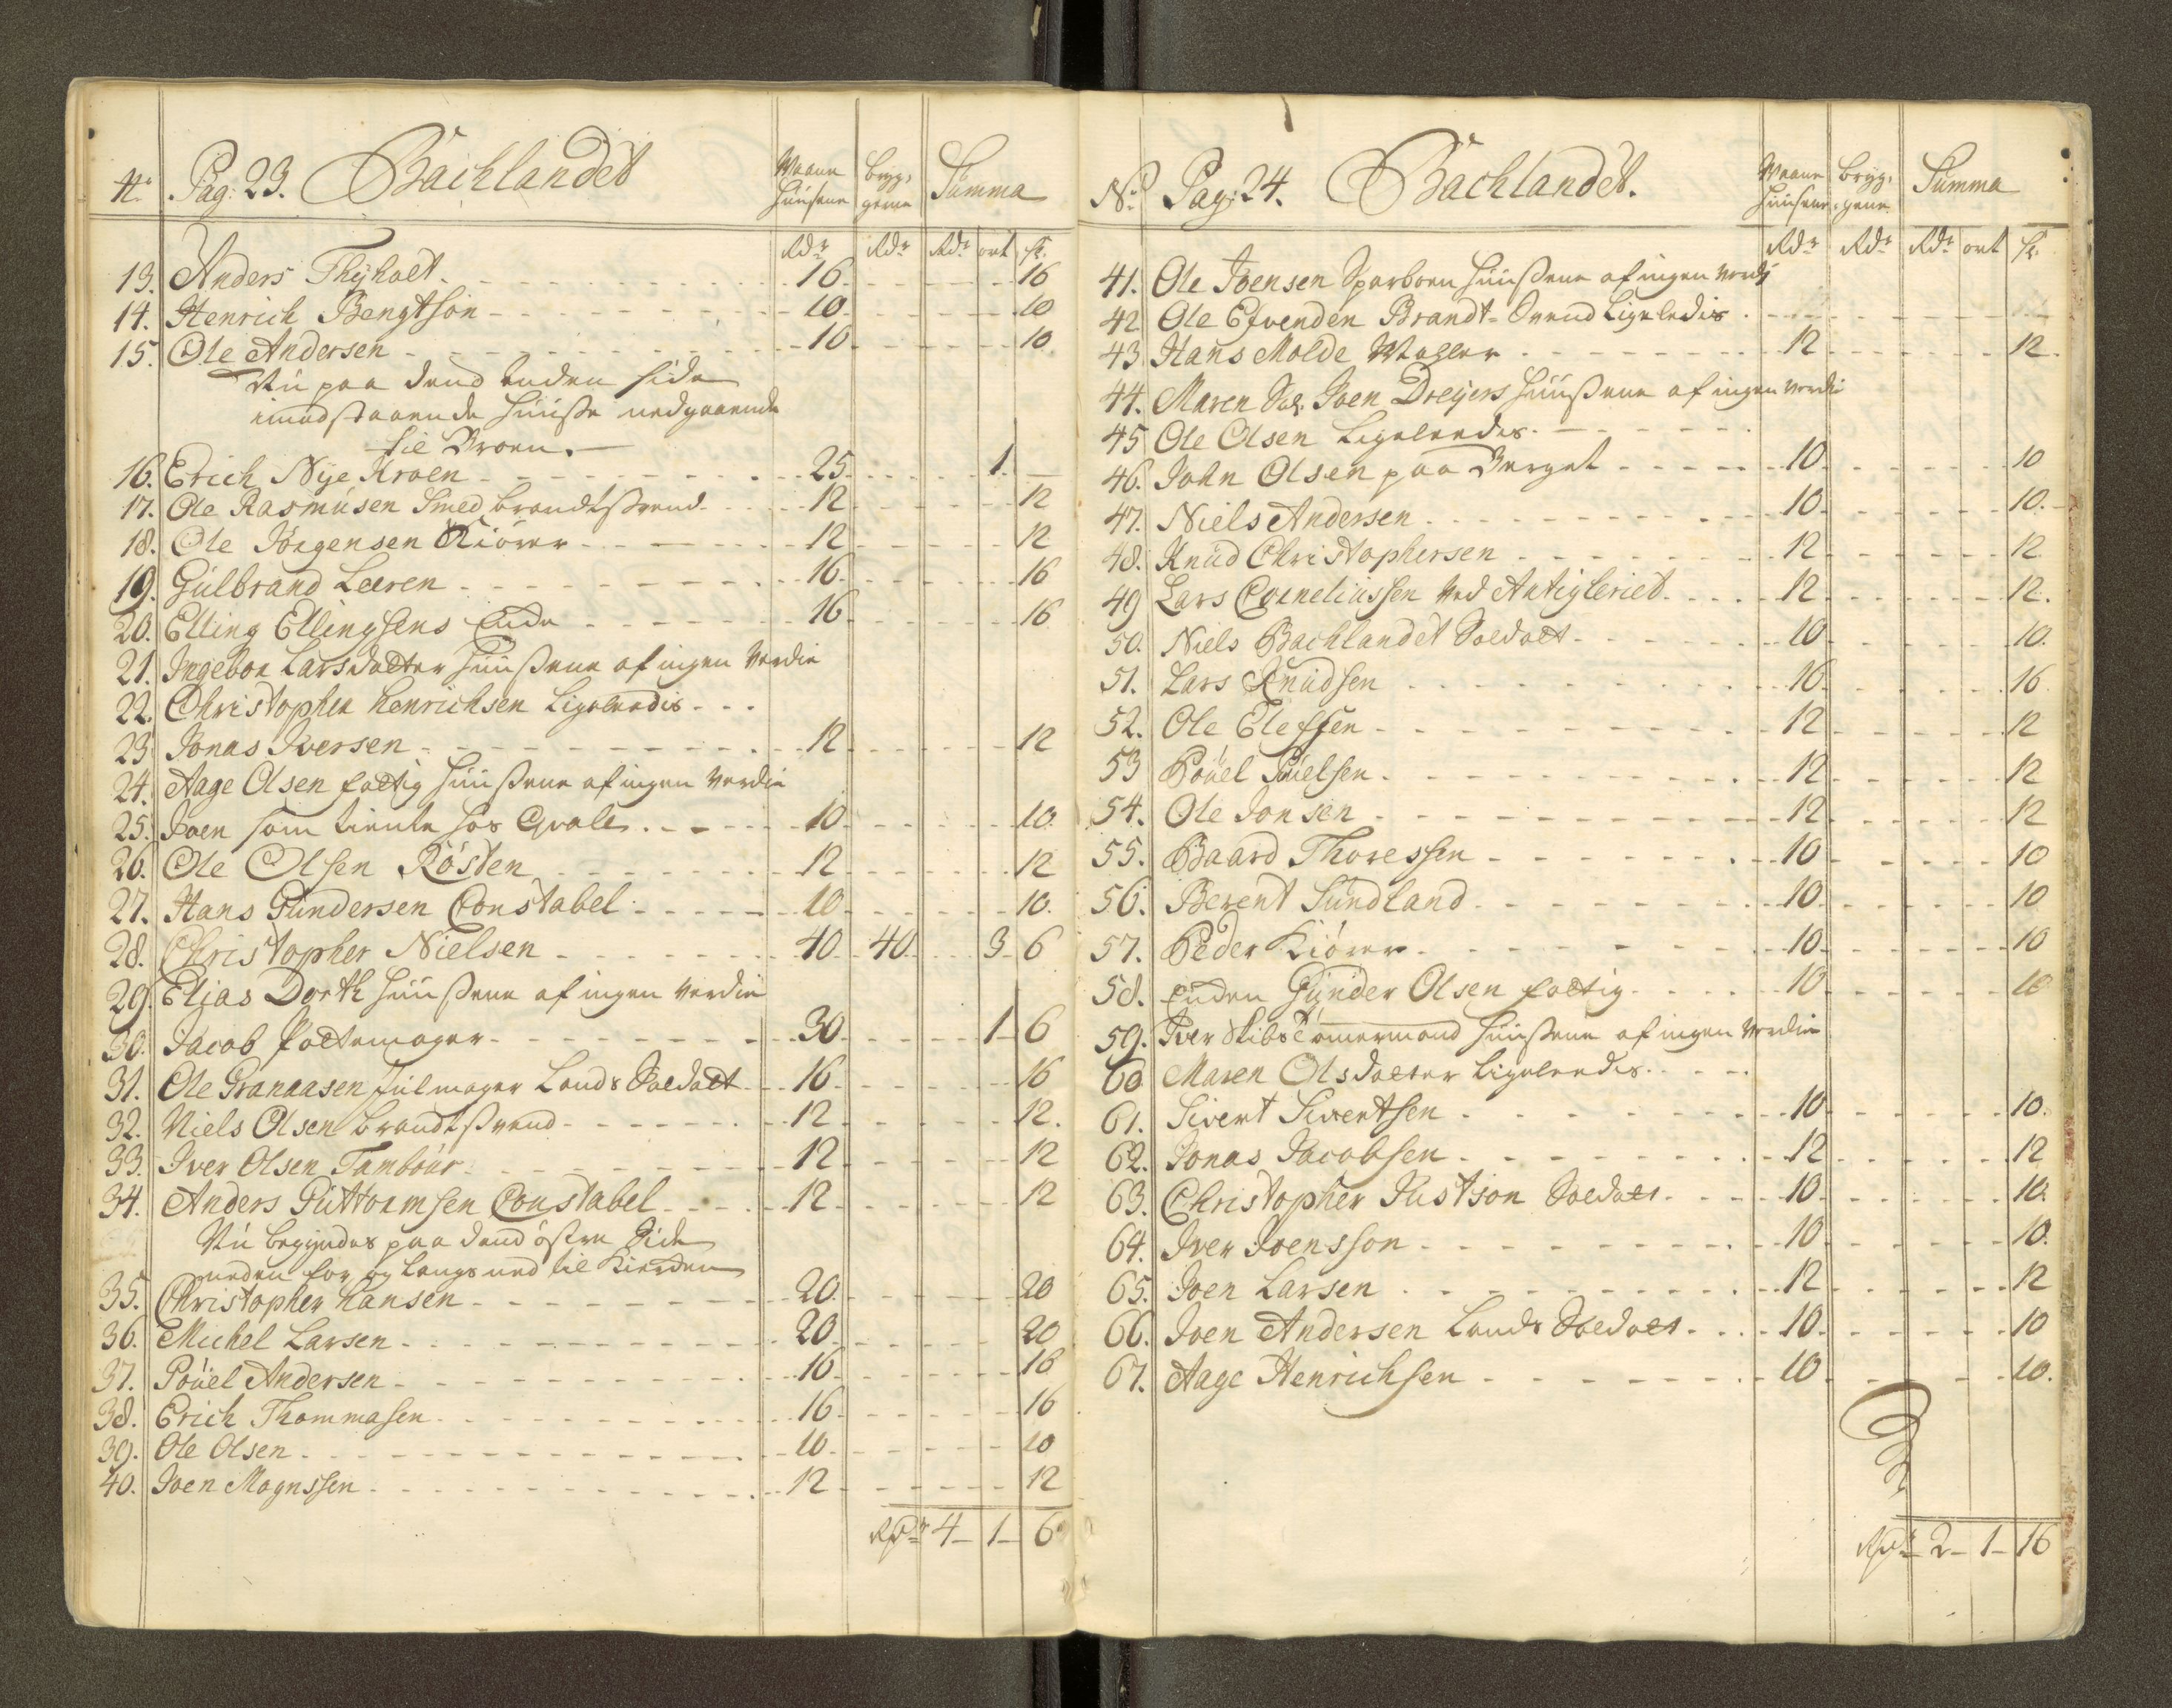 No Pag: 23. Bachlandet Waane Huusene Bryg- gerne Summa
Rdr Rdr Rdr ort sk.
13. Anders Thyholt 16 16
14. Henrich Bengtson 10 10
15. Ole Andersen 10 10
Nu paa dend anden side
imodstaaende Huuse nedgaaende
til Broen.
16. Erich Nye Kroen 25 1.
17. Ole Rasmusen Smed brandtsvend 12 12
18. Ole Jörgensen Kiörer 12 12
19. Gulbrand Leeren 16 16
20. Elling Ellingsens Enke 16 16
21. Ingebor Larsdatter Huusene af ingen Verdie
22. Christopher Henrichsen Ligeledis
23. Jonas Iversen 12 12
24. Aage Olsen fattig Huusene af ingen Verdie
25. Joen som tiente hos Qvale 10 10
26. Ole Olsen Rösten 12 12
27. Hans Gundersen Constabel 10 10.
28. Christopher Nielsen 40 40 3 6
29. Elias Dorth Huusene af ingen Verdie
30. Jacob Pottemager 30 1 6
31. Ole Granaasen Hiulmager Lands Soldatt 16 16
32. Niels Olsen brandtsvend 12 12.
33. Iver Olsen Tambour 12 12
34. Anders Guttormsen Constabel 12 12
Nu begyndes paa dend östre Side
neden for og langs ned til Kierden
35. Christopher Hansen 20 20
36. Michel Larsen 20 20
37. Pouel Andersen 16 16
38. Erich Thommasen 16 16
39. Ole Olsen 10 10
40. Joen Magnssen 12 12
Rdr 4 1 6
No Pag: 24. Bachlandet. Waane Huusene Bryg- gene Summa
Rdr Rdr Rdr ort sk.
41. Ole Joensen Sparboen Huusene af ingen Verdj
42 Ole Efvenden Brandt-Svend Ligeledis
43 Hans Molde Mahler 12 12.
44. Maren Sal. Joen Dreyers Huusene af ingen Verdi
45 Ole Olsen Ligeleedes
46. John Olsen paa Berget 10 10
47. Niels Andersen 10 10.
48. Knud Christophersen 12 12.
49 Lars Corneliussen Ved Artigleriet 12 12.
50. Niels Bachlandet Soldatt 10 10.
51. Lars Knudsen 16 16
52. Ole Eleffsen 12 12
53 Pouel Povelsen 12 12
54. Ole Jonsen 12 12
55. Baard Thoressen 10 10
56. Berent Sundland 10 10
57. Peder Kiörer 10 10
58. Enken Gunder Olsen fattig 10 10
59. Iver Skibs Tömermand Huusene af ingen Verdie
60 Maren Olsdatter Ligeleedes
61. Sivert Sivertsen 10 10.
62. Jonas Jacobsen 12 12
63. Christopher Justson Soldatt 10 10.
64. Iver Joensson 10 10.
65. Joen Larsen 12 12
66. Joen Andersen Lands Soldatt 10 10
67. Aage Henrichsen 10 10.
Rdr 2 1 16